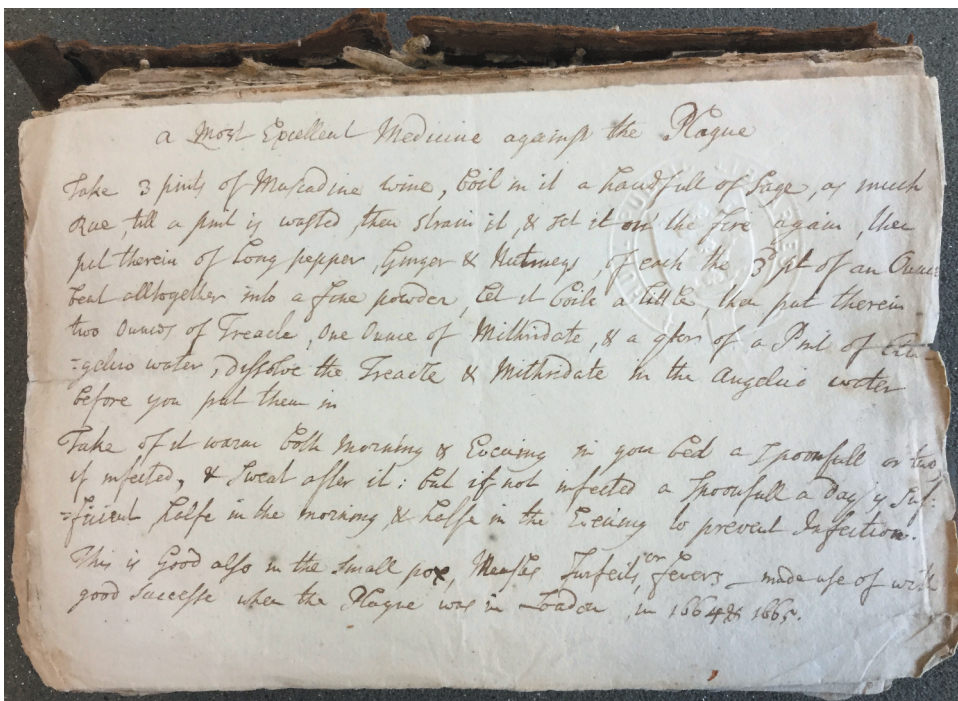 a Most Excellent Medicine against the Plague
Take 3 pints of Muscadine wine, boil in it a handfull of Sage, as much
Rue, till a pint is wasted, then strain it, & set it on the fire again, then
put therein of Long pepper, Ginger & Nutmegs, of each the 3d pt of an Ounce
beat alltogether into a fine powder, let it boile a little, then put therein
two Ounces of Treacle, one Ounce of Mithridate, & a qtor of a Pint of
=gelico water, dissolve the Treacle & Mithridate in the Angelico water
before you put them in
Take of it warm both Morning & Evening in your bed a Spoonfull or two,
if infected, & Sweat after it: but if not infected a Spoonfull a day is Suf:
=ficient, halfe in the morning & halfe in the Evening to prevent Infection.
This is Good also in the Small pox, Measles, Surfeits, or fevers _ made use of with
good Successe when the Plague was in London, in 1664 & 1665.